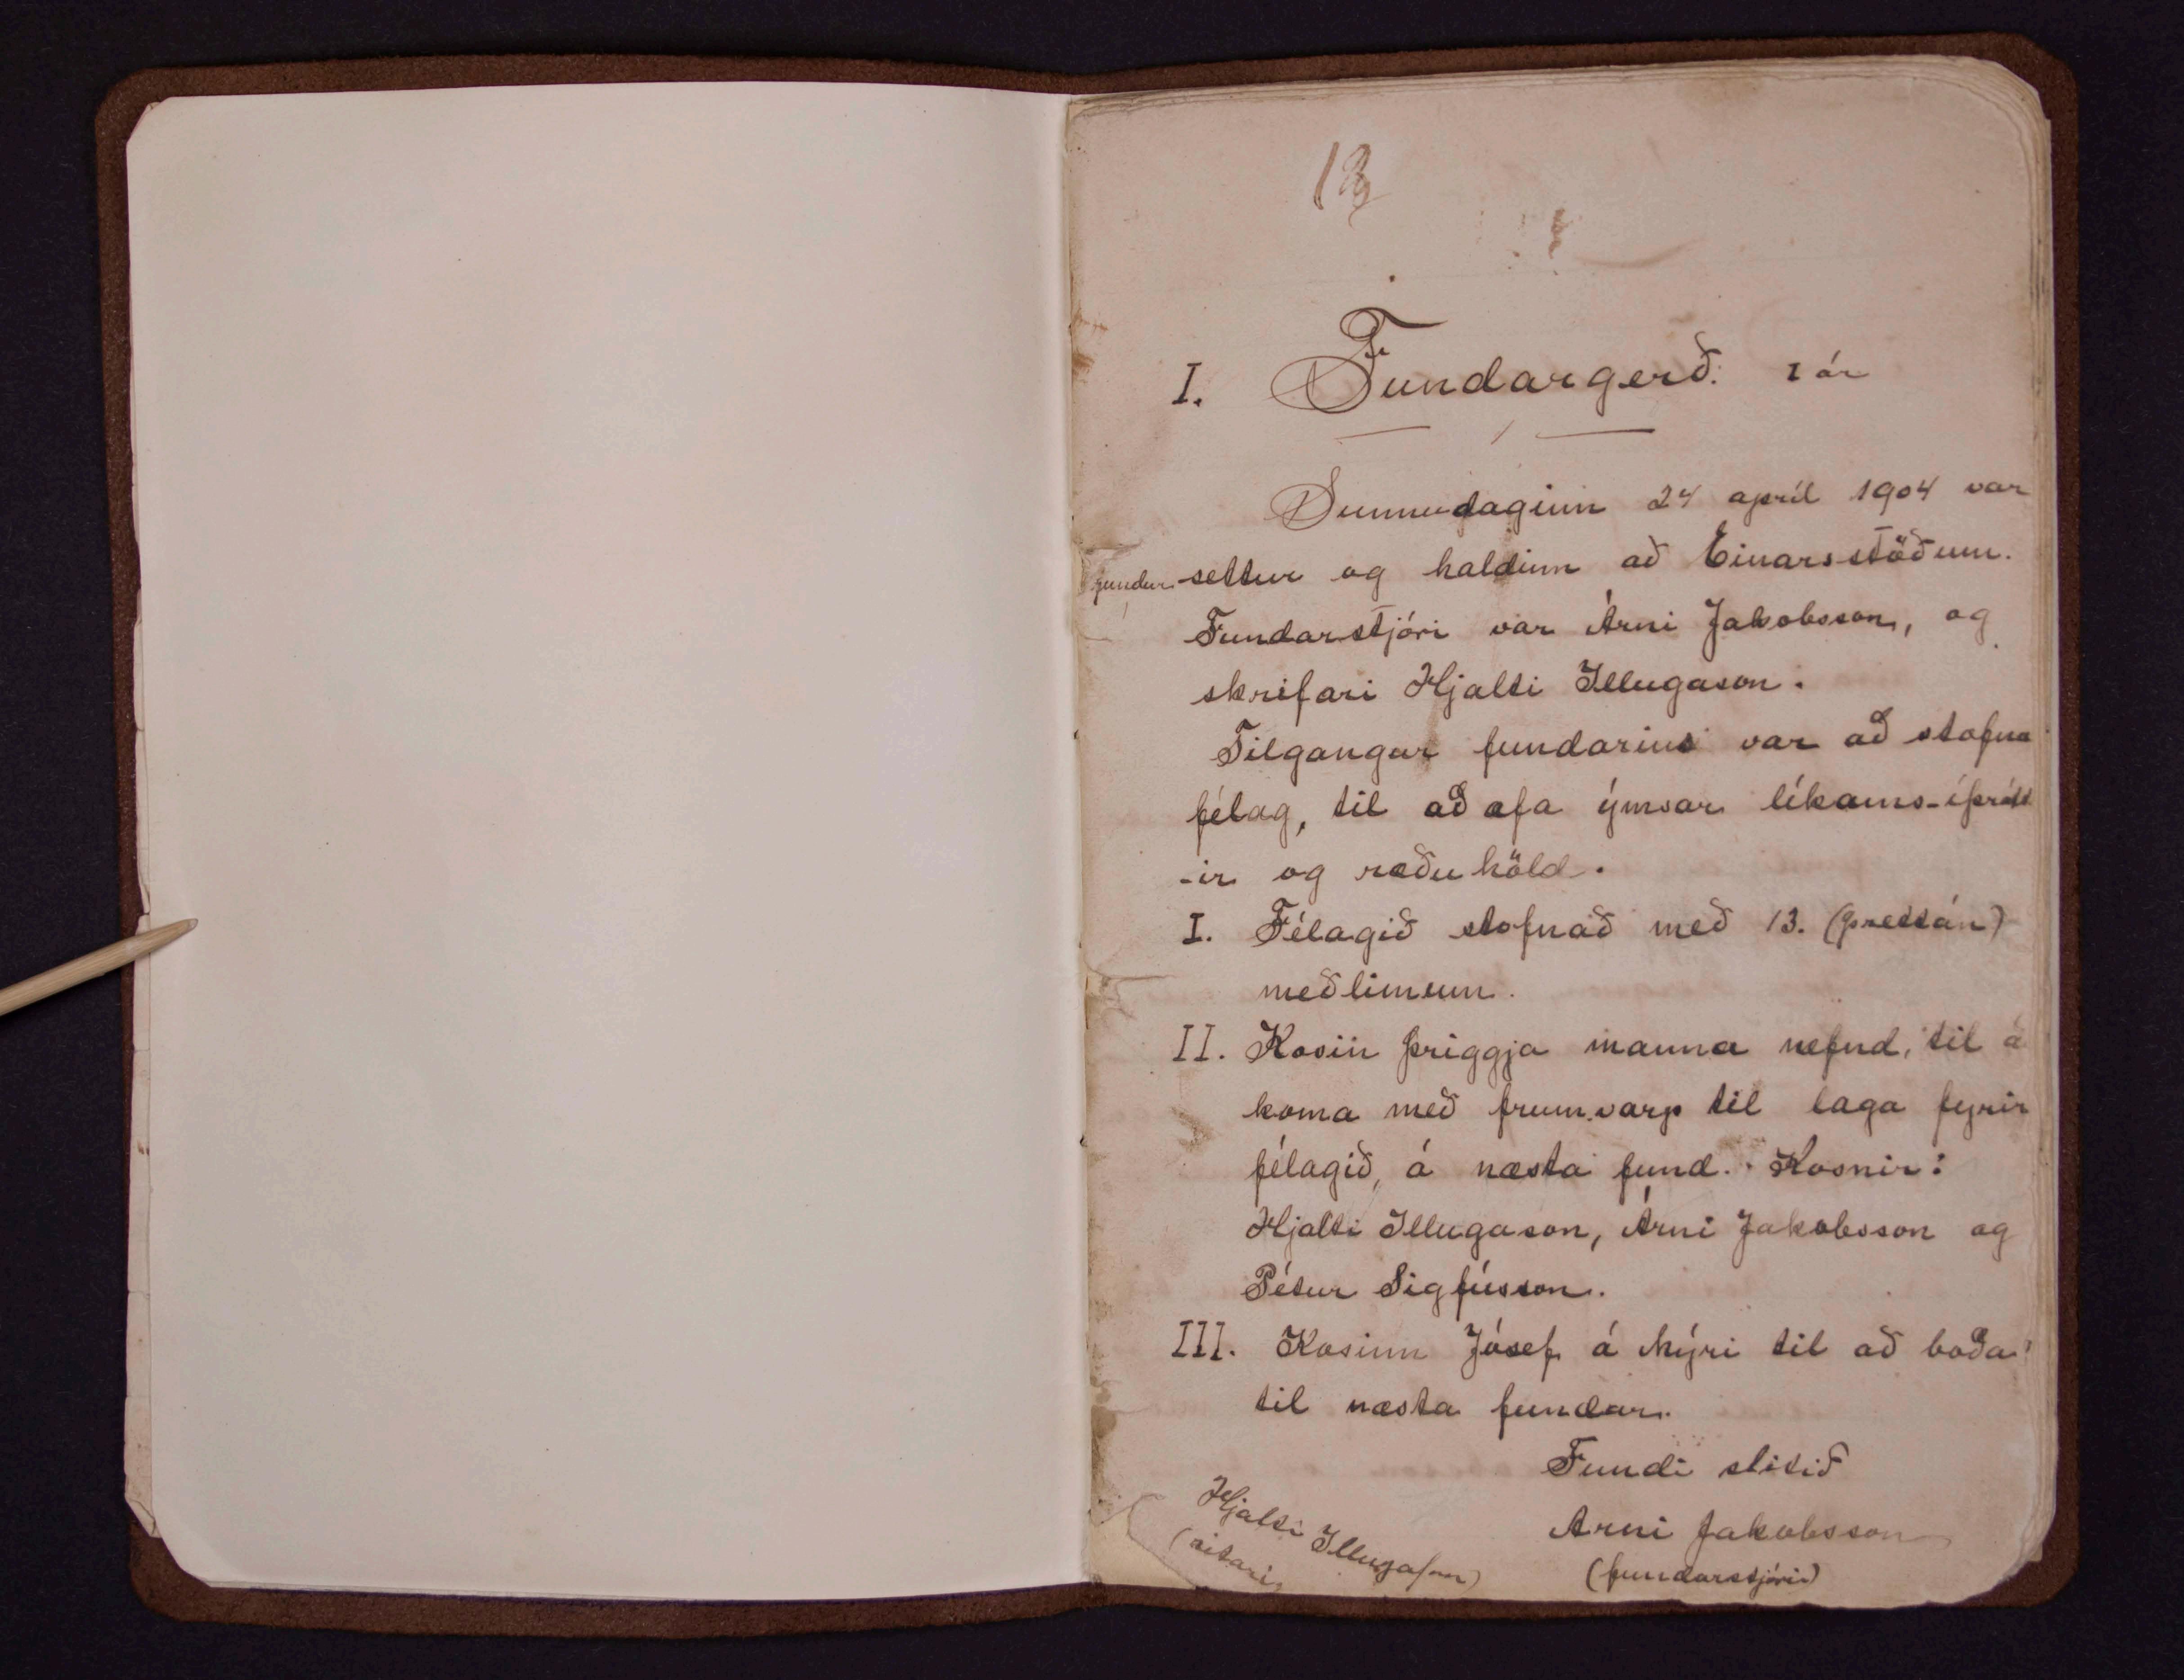 I. Fundargerð. 1 ár
Sunnudaginn 24 apríl 1904 var
fundur settur og haldinn að Einarsstöðum.
Fundarstjóri var Árni Jakobsson, og
skrifari Hjalti Illugason.
Tilgangur fundarins var að stofna
félag, til að æfa ýmsar líkams-íþrótt
-ir og ræðuhöld.
I. Félagið stofnað með 13. (þrettán)
meðlimum.
II. Kosin þriggja manna nefnd, til a
koma með frumvarp til laga fyrir
félagið, á næsta fund. Kosnir:
Hjalti Illugason, Árni Jakobsson og
Pétur Sigfússon.
III. Kosinn Jósef á Mýri til að boða
til næsta fundar.
Fundi slitið
Árni Jakobsson
(fundarstjóri)
Hjalti Illugason
(ritari)